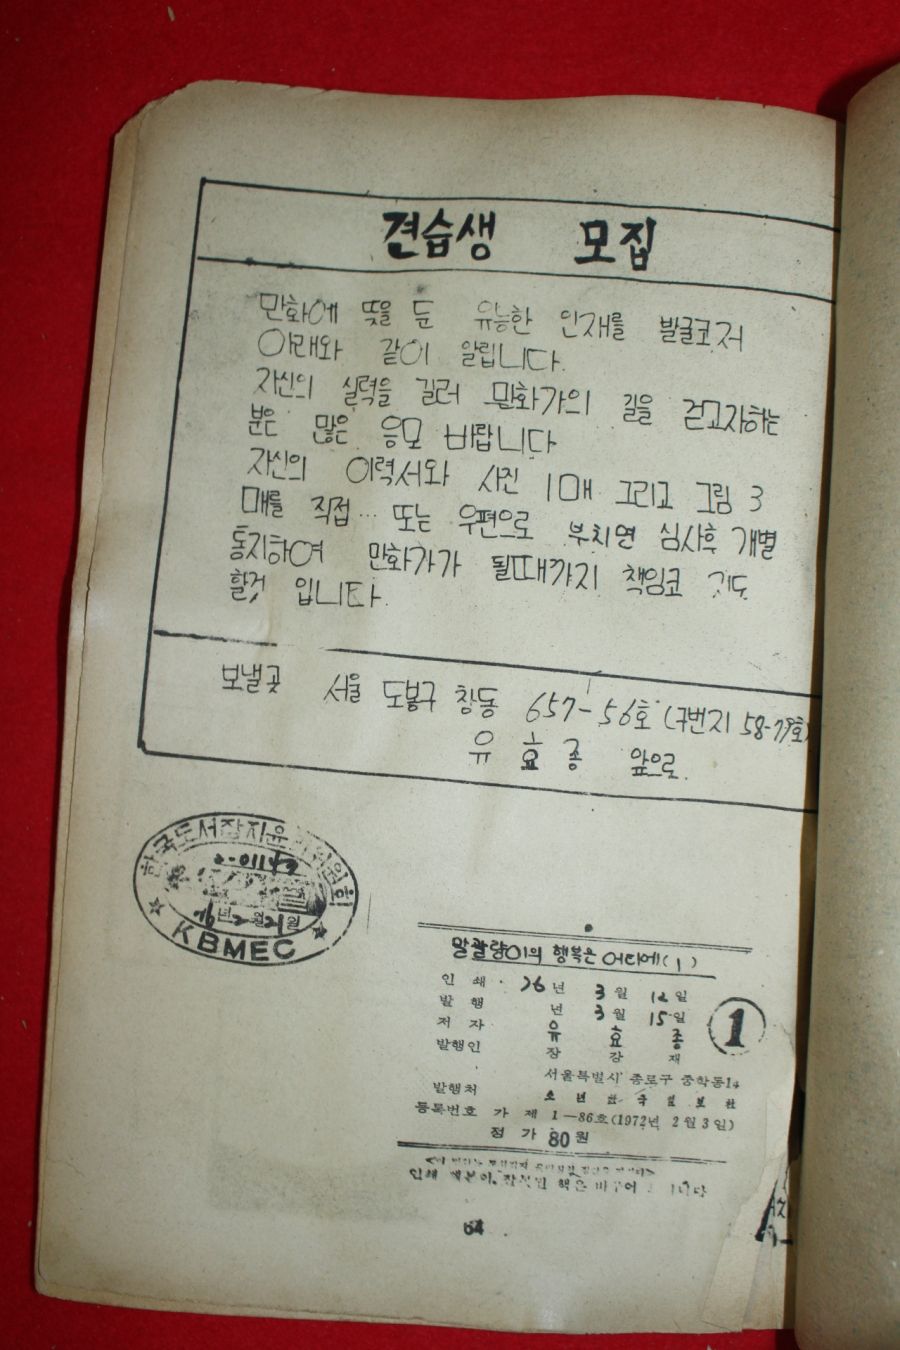 견습생 모집
만화에 뜻을 둔 유능한 인재를 발굴코저
아래와 같이 알립니다.
자신의 실력을 길러 만화가의 길을 걷고자하는
분은 많은 응모 바랍니다
자신의 이력서와 사진 1매 그리고 그림 3
매를 직접 또는 우편으로 부치면 심사후 개별
통지하여 만화가가 될때까지 책임코 지도
할것 입니다.
보낼곳 서울 도봉구 창동 657-56호 (구번지 58-79호)
유 효 종 앞으로.
한국도서잡지윤리위원회
76년 2월 21일
KBMEC
말괄량이의 행복은 어디에(1)
인쇄 76년 3월 12일
발행 년 3월 15일
저자 유 효 종
발행인 장 강 재
1
서울특별시 종로구 중학동14
발행처 소년한국일보社
등록번호 가 제 1—86호(1972년 2월3일)
정 가 80원
인쇄 제본이 잘못된 책은 바꾸어
64